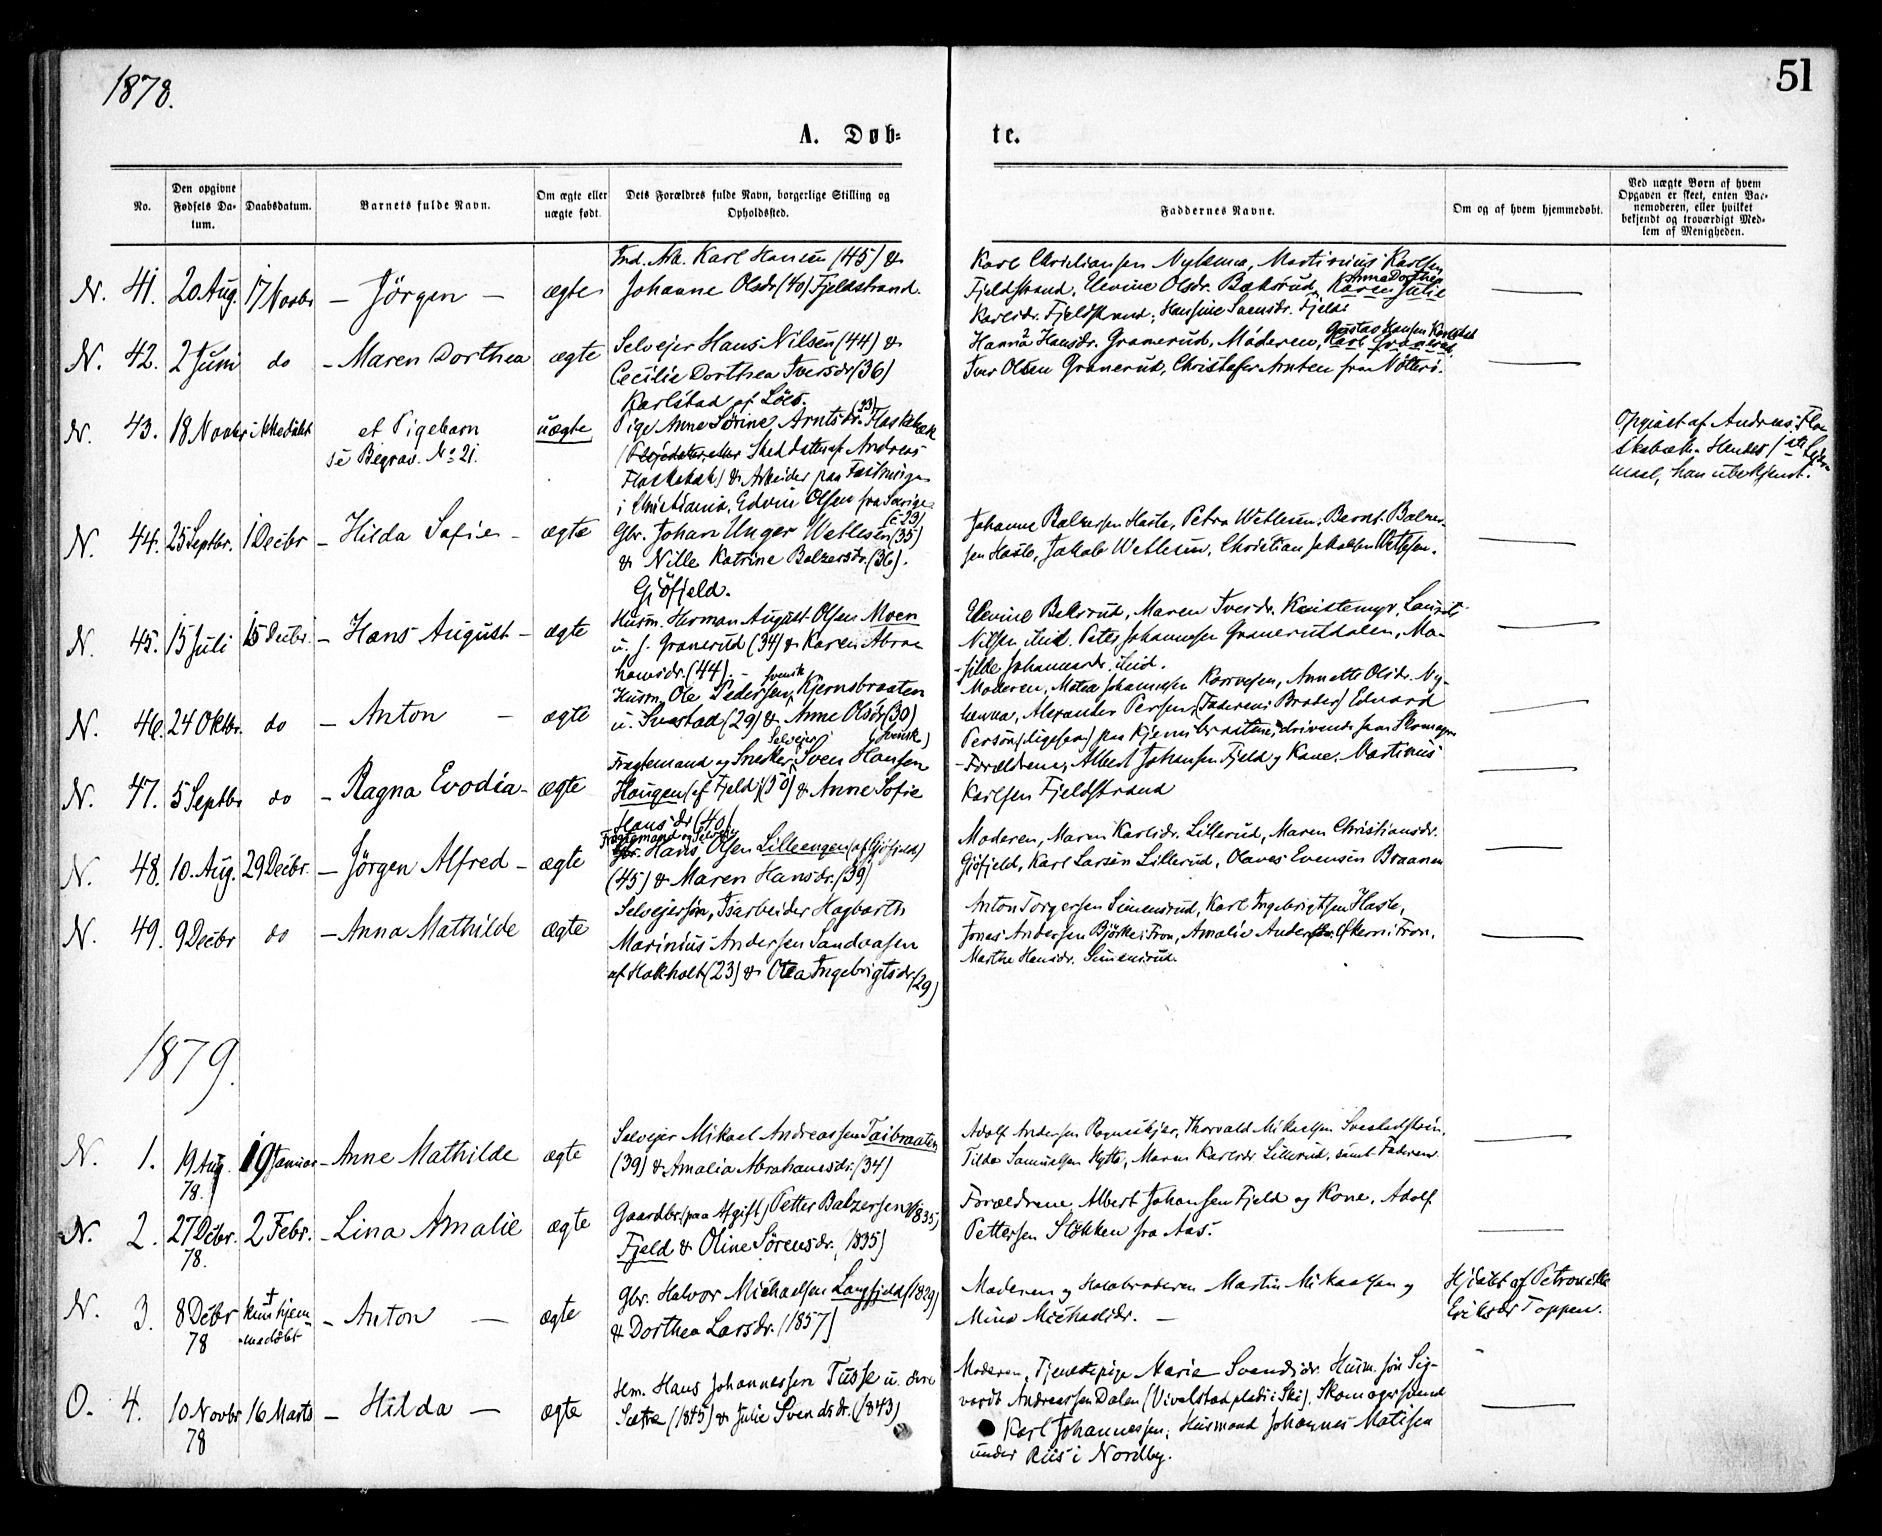 1878.
51
A. Døb-
te.
No.
Den opgivne
Fødsels Da-
tum.
Daabsdatum.
Barnets fulde Navn.
Om ægte eller
uægte født.
Dets Forældres fulde Navn, borgerlige Stilling og
Opholdssted.
Faddernes Navne.
Om og af hvem hjemmedøbt.
Ved uægte Børn af hvem
Opgaven er skeet, enten Bar-
nemoderen, eller hvilket
bekjendt og troværdigt Med-
lem af Menigheden.
N. 41. 20 Aug. 17 Novbr – Jörgen – ægte
Ind. Arb. Karl Hansen (45) &
Johanne Olsdr (40) Fjeldstrand.
Karl Christiansen Nykmna, Martinius Karlsen
Fjeldstrand, Elevine Olsdr. Bæksrud, Karen Julie
Anna Dorthea
Karlsdr. Fjeldstrand; Hansine Svensdr. Fjeld
N. 42. 2 Juni do – Maren Dorthea ægte
Selvejer Hans Nilsen (44) &
Cecilie Dorthea Iversdr (36)
Karlstad af Löes.
Hanna Hansdr. Granerud, Moderen,
Gustav Hansen Karlstad
Iver Olsen Granerud, Christofer Arnten fra Nötterö.
N. 43. 18 Novbr ikkedöbt et Pigebarn uægte
se Begrav. No 21.
Pige Anne Sörine Arntsdr. (23) Flaskebæk
Steddatter af Andreas
Flaskebæk) & Arbeider paa
i Christiania, Edvin Olsen fra Sverige
(c. 23)
Opgivet af Andreas Fla
skebæk. Hendes 1ste Leier-
maal, han ubekjendt.
N. 44. 25 Septbr. 1 Decbr – Hilda Sofie – ægte
Gbr. Johan Unger Wetlesen (35)
& Nille Katrine Balzersdr. (36).
Gjöfjeld.
Johanne Balzersen Hasle, Petra Wetlesen, Bernt Balzer-
sen Hasle, Jakob Wetlesen, Christian Jakobsen Wetlesen.
N. 45. 15 Juli 15 Decbr. – Hans August – ægte
Husm. Herman August Olsen Moen
u. f. Granerud (34) & Karen Abra
hamsdr. (44).
Elevine Beksrud, Maren Iversdr. Kristemyr, Laurits
Nilsen, ibid. Peter Johannesen Graneruddalen, Ma-
thilde Johannesdr. ibid.
N. 46. 24 Oktbr. do – Anton – ægte
svensk
Husm. Ole Pedersen, Kjernsbraaten
u. Svestad (29) & Anne Olsdr (30)
(svensk)
Moderen, Matea Johannesen Korvesen, Annette Olsdr. Ny-
kmna, Alexander Persen, (Faderens Broder) Edvard
N. 47. 5 Septbr do – Ragna Evodia – ægte
Selvejer
Fragtemand og Snekker, Sven Hansen
Haugen (af Fjeld) (50) & Anne Sofie
Hansdr (40)
Forældrene, Albert Johansen Fjeld og Kone, Martinius
Karlsen Fjeldstrand
N. 48. 10. Aug. 29 Decbr. – Jörgen Alfred – ægte
Fragtemand og Selvejer
Hans Olsen Lilleengen (af Gjöfjeld)
(45) & Maren Hansdr. (39)
Moderen, Maren Karlsdr. Lillerud, Maren Christiansdr.
Gjöfjeld, Karl Larsen Lillerud, Olaves Evensen Braanen
N. 49. 9 Decbr do – Anna Mathilde ægte
Selvejersön, Isarbeider Hagbarth
Marinius Andersen Sandaasen
af Hokholt (23) & Olea Ingebrigtsdr (29)
Anton Torgersen Simensrud, Karl Ingebrigtsen Hasle,
Jonas Andersen Björke i Fron, Amalie Andersen Økern i Fron,
Marthe Hansdr. Simensrud.
1879.
N. 1. 19 Aug. 19 Januar – Anne Mathilde ægte
78.
Selvejer Mikael Andreassen Taibraaten
(39) & Amalia Abrahamsdr. (34)
Adolf Andersen Ramskjær, Thorvald Mikaelsen
Tilda Samuelsen Hytta, Maren Karlsdr Lillerud, samt Faderen.
N. 2. 27 Decbr. 2 Febr. – Lina Amalie ægte
78.
Gaardbr. (paa Afgift) Petter Balzersen (1835)
Fjeld & Oline Sörensdr. (1835)
Forældrene, Albert Johansen Fjeld og Kone, Adolf
Pettersen Stökken fra Aas.
N. 3. 8 Decbr kun hjem – Anton – ægte
78 medöbt
Gbr. Halvor Michaelsen Langfjeld (1829)
& Dorthea Larsdr. (1857)
Moderen og Halvbroderen Martin Mikaelsen og
Mina Michaelsdr. –
Hjdöbt af Petronille
Eriksdr Toppen.
O. 4. 10 Novbr 16 Marts – Hilda – ægte
78
Hm. Hans Johannessen Tusse u. övre
Sætre (1845) & Julie Svendsdr. (1843)
Moderen, Tjenestepige Marie Svendsdr. Husm. sön Sig-
vardt Andreassen Dalen (Vivelstadplads i Ski), Skomagersvend
Karl Johannessen, Husmand Johannes Matisen
under Riis i Nordby.